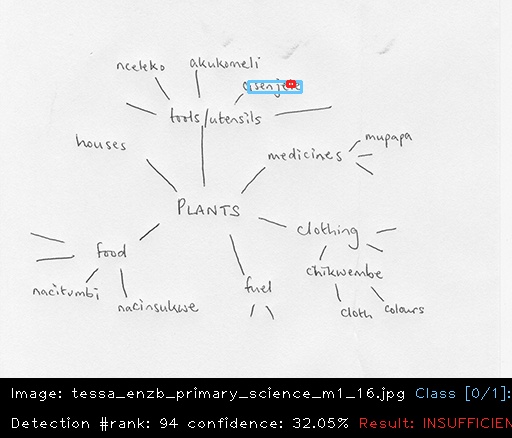 nceleko
akukomeli
tools/utensils
houses
medicines
mupapa
PLANTS
clothing
food
chikwembe
nacitumbi
nacinsukwe
fuel
cloth
colours
Image: tessa_enzb_primary_science_m1_16.jpg Class [0/1]:
Detection #rank: 94 confidence: 32.05% Result: INSUFFICIEN